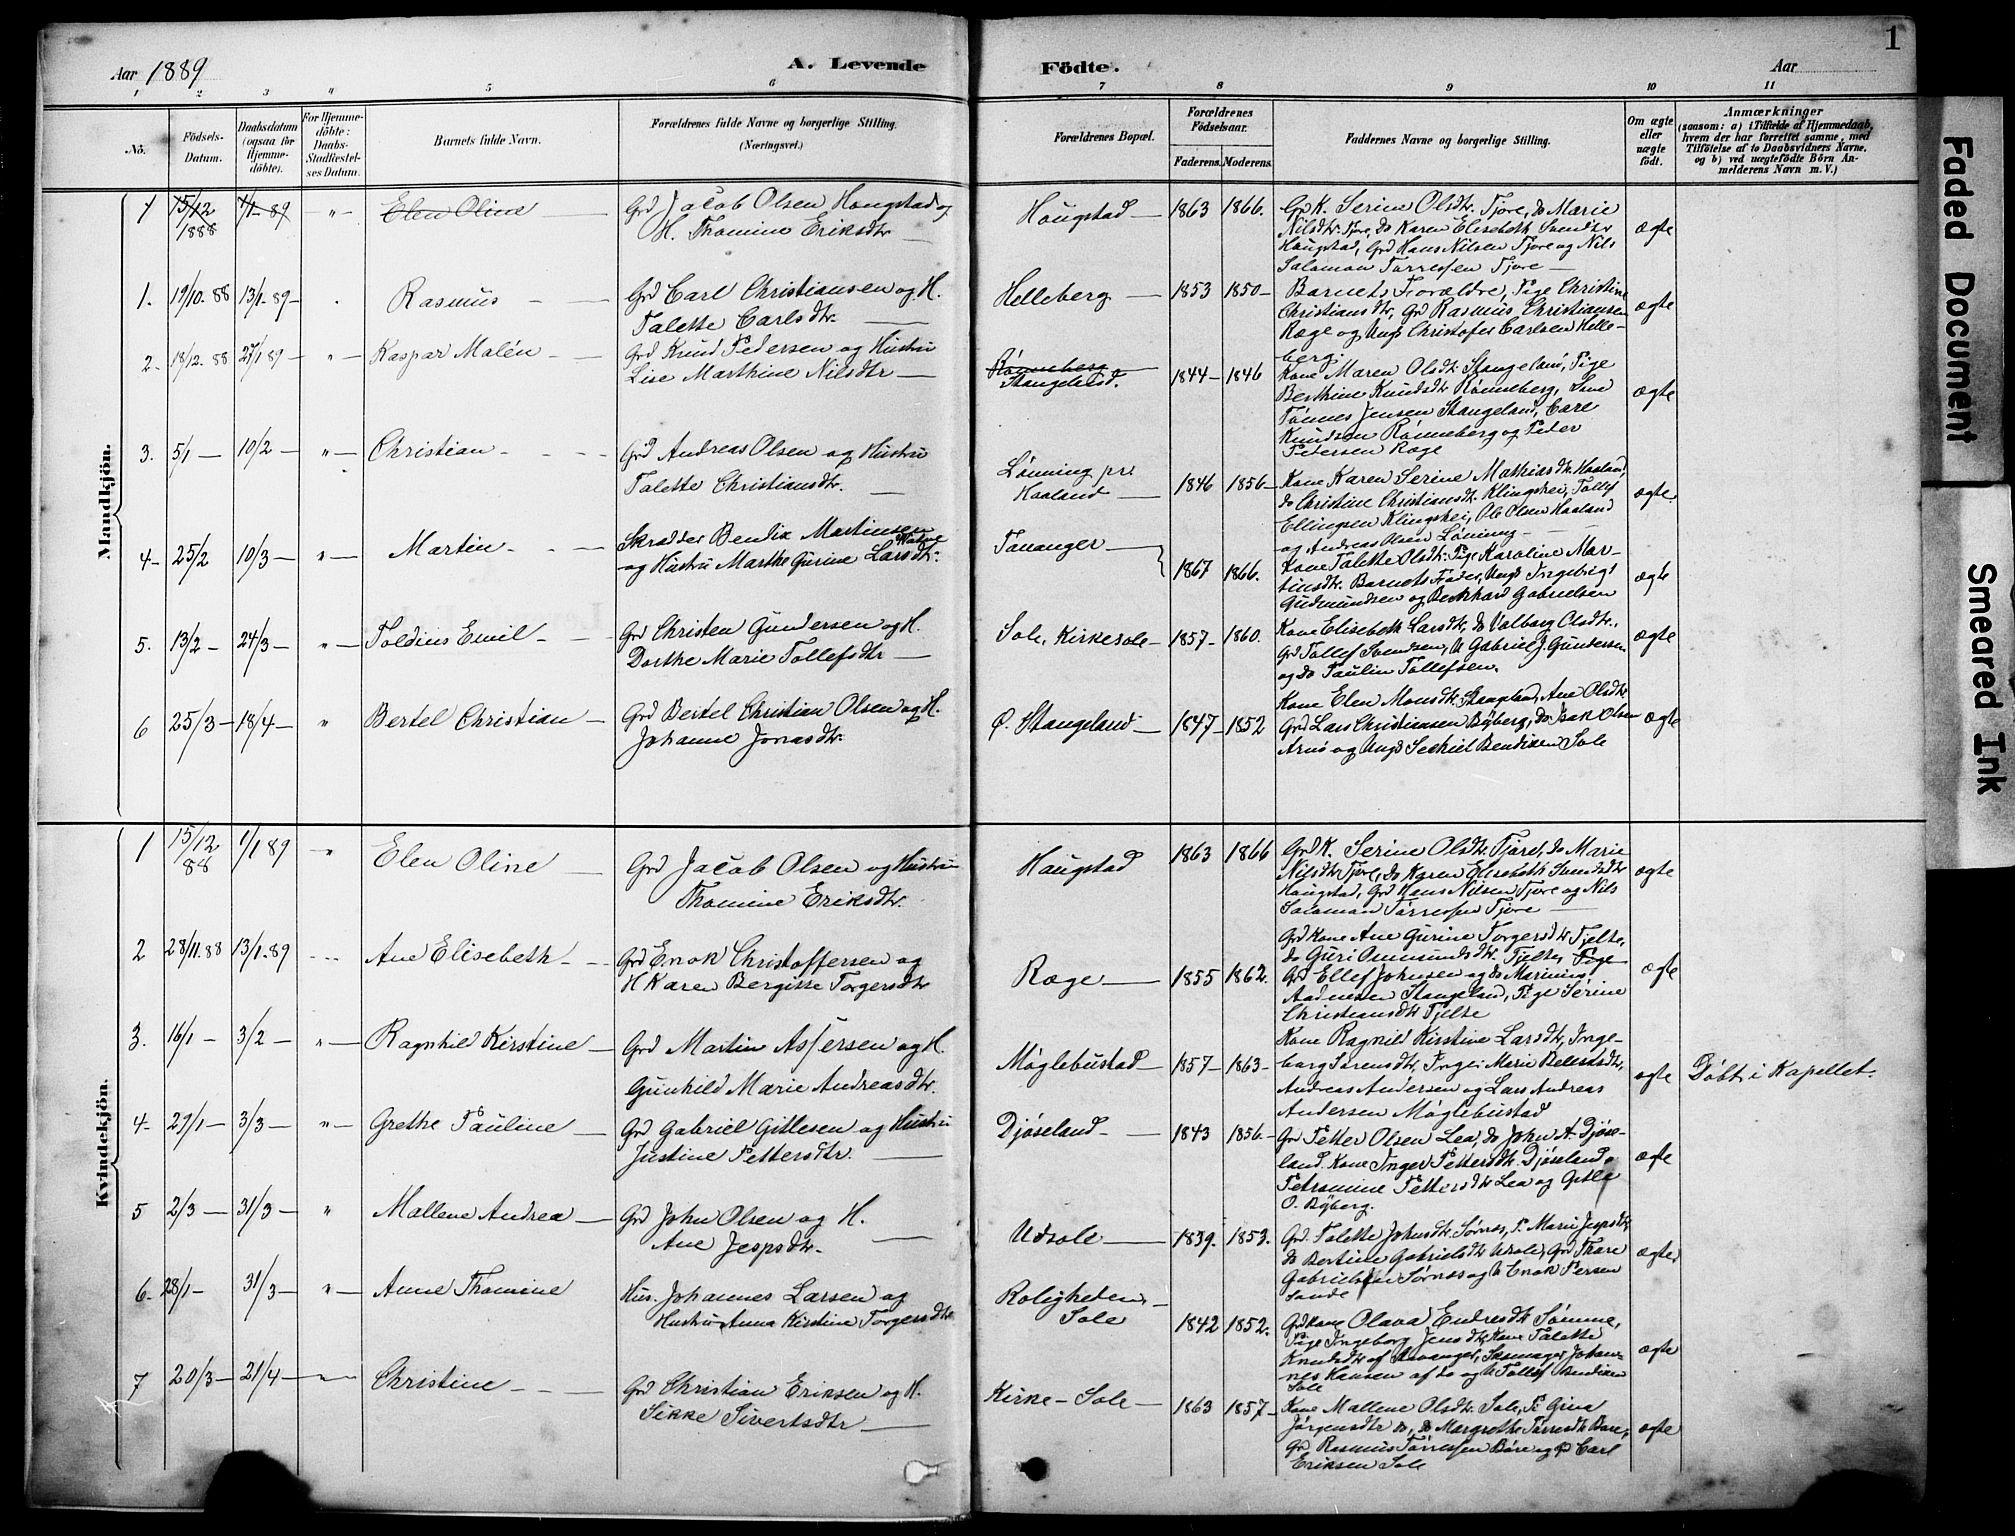 Aar 1889
A. Levende Födte.
Aar
1
1 2 3 " 5 6 7 8 9 10 11
No.
Födsels-Datum.
Daabsdatum (ogsaa for Hjemme-döbte).
For Hjemme-döbte: Daabs-Stadfæstel-ses Datum.
Barnets fulde Navn.
Forældrenes fulde Navne og borgerlige Stilling.
(Næringsvei.)
Forældrenes Bopæl.
Forældrenes Födselsaar.
Faderens. Moderens.
Faddernes Navne og borgerlige Stilling.
Om ægte eller uægte födt.
Anmærkninger
(saasom: a) i Tilfælde af Hjemmedaab, hvem der har forrettet samme, med Tilföielse af to Daabsvidners Navne, og b) ved uægtefödte Börn An-melderens Navn m. V.)
Mandkjön.
1 15/12 1888 1/1-89 — " — Elen Oline — Grd Jacob Olsen Haugstad og
H. Thomine Eriksdtr —
Haugstad — 1863 1866. Grd K. Serine Olsdtr. Tjore, do Marie
Nilsdtr. Tjore, do Karen Elisebeth Svendsdtr
Haugstad, Grd Hans Nilsen Tjore og Nils
Salamon Tørressen Tjore —
ægte
1. 19/10-88 13/1-89 — Rasmus — Grd Carl Christiansen og H.
Talette Carlsdtr. —
Helleberg — 1853 1850 — Barnets Forældre, Pige Christine
Christiansdtr, Grd Rasmus Christiansen
Ræge og Ungk Christofer Carlsen Helle-
berg.
ægte
2. 18/12-88 27/1 89 — " — Kaspar Malén — Grd Knud Pedersen og Hustru
Lise Marthine Nilsdtr —
Rønneberg
Stangeland. 1844 — 1846 Kone Maren Olsdtr. Stangeland, Pige
Berthine Knudsdtr Rønneberg,
Tønnes Jensen Stangeland, Carl
Knudsen Rønneberg og Peder
Petersen Ræge
ægte
3. 5/1 — 10/2 — " — Christian — Grd Andreas Olsen og Hustru
Talette Christiansdtr. —
Lønning pr
Haaland — 1846 1856 — Kone Karen Serine Mathiasdtr. Haaland,
do Christine Christiansdtr. Klingshei, Tollef
Ellingsen Klingshei, Ole Olsen Haaland
og Andreas Olsen Lønning —
ægte
4 — 25/2 10/3 — " — Martin — Skrædder Bendix Martinsen
og Hustru Marthe Gurine Larsdtr.
Tananger — 1867 1866. Kone Talette Olsdtr. Pige Karoline Mar-
tinsdtr. Barnets Fader, Ungk Ingebrigt
Gudmundsen og Berkhard Gabrielsen
ægte
5. 13/2 — 24/3 — " — Toldius Emil — Grd Christen Gundersen og H.
Dorthe Marie Tollefsdtr —
Sole, Kirkesole — 1857 — 1860. Kone Elisebeth Larsdtr, do Valborg Olsdtr.,
Grd Tollef Svendsen, U Gabriel J. Gundersen
og do Paulin Tollefsen.
ægte
6 25/3 — 18/4 — " Bertel Christian — Grd Bertel Christian Olsen og H.
Johanne Jonasdtr.
Ø. Stangeland — 1847 — 1852 Kone Elen Monsdtr. Stangeland, Ane Olsdtr
Grd Lars Christiansen Byberg, do Isak Olsen
Arnø og Ungk Sechiel Bendixen Sole
ægte
Kvindekjön.
1 15/12 88 1/1 89 " Elen Oline — Grd Jacob Olsen og Hustru
Thomine Eriksdtr.
Haugstad 1863 1866 Grd K. Serine Olsdtr Tjore, do Marie
Nilsdtr Tjore, do Karen Elisebeth Svendsdtr
Haugstad, Grd Hans Nilsen Tjore og Nils
Salamon Tørressen Tjore —
ægte
2 28/11.88 13/1-89 Ane Elisebeth — Grd Enok Christoffersen og
H Karen Bergitte Torgersdtr
Ræge — 1855 1862. Grd Kone Ane Gurine Torgersdtr Tjelte,
do Guri Osmundsdtr. Tjelte, Pige
Grd Ellef Johnsen og do Marining
Aadnesen Stangeland, Pige Serine
Christiansdtr Tjelte
ægte
3. 16/1 — 3/2 " — Ragnhild Kirstine — Grd Martin Assersen og H.
Gunhild Marie Andreasdtr.
Møglebustad — 1857 — 1863 — Kone Ragnild Kirstine Larsdtr, Inge-
borg Sørensdtr, Pige Marie
Andreas Andersen og Lars Andreas
Andersen Møglebustad
ægte Döbt i Kapellet.
4 — 29/1 — 3/3 — " — Grethe Pauline — Grd Gabriel Gitlesen og Hustru
Justine Pettersdtr. —
Djøseland — 1843 1856 — Grd Petter Olsen Lea, do John A. Djøse-
land. Kone Inger Pettersdtr. Djøseland,
Petromine Pettersdtr Lea og Gitle
O. Byberg.
ægte
5 2/3 — 31/3 — " Mallene Andrea — Grd John Olsen og H.
Ane Jespsdtr. —
Udsole — 1839. 1853. Grd. Talette Johnsdtr. Sørnes, P. Marie Jespsdtr
do Bertine Gabrielsdtr Usole, Grd Thore
Gabrielsen Sørnes og U Enok Persen
Sande
ægte
6. 28/1 — 31/3 — " — Anne Thomine Hus. Johannes Larsen og
Hustru Anna Kirstine Torgersdtr
Roligheden —
Sole 1842 1852. Grd Kone Olava Endresdtr Sømme,
Pige Ingeborg Jensdtr, Kone Talette
Knudsdtr af Stavanger, Johan-
nes Hansen af do og U Tollef Bendixen
Sole
ægte
7 20/3 — 21/4 — " — Christine — Grd Christian Eriksen og H.
Sikke Sivertsdtr —
Kirke-Sole — 1863 1857 — Kone Mallene Olsdtr. Sole, P. Grina
Jørgensdtr do, do Margrethe Tørresdtr Bore,
Grd Rasmus Tørressen Bore og Carl
Eriksen Sole
ægte
Faded Document
Smeared Ink